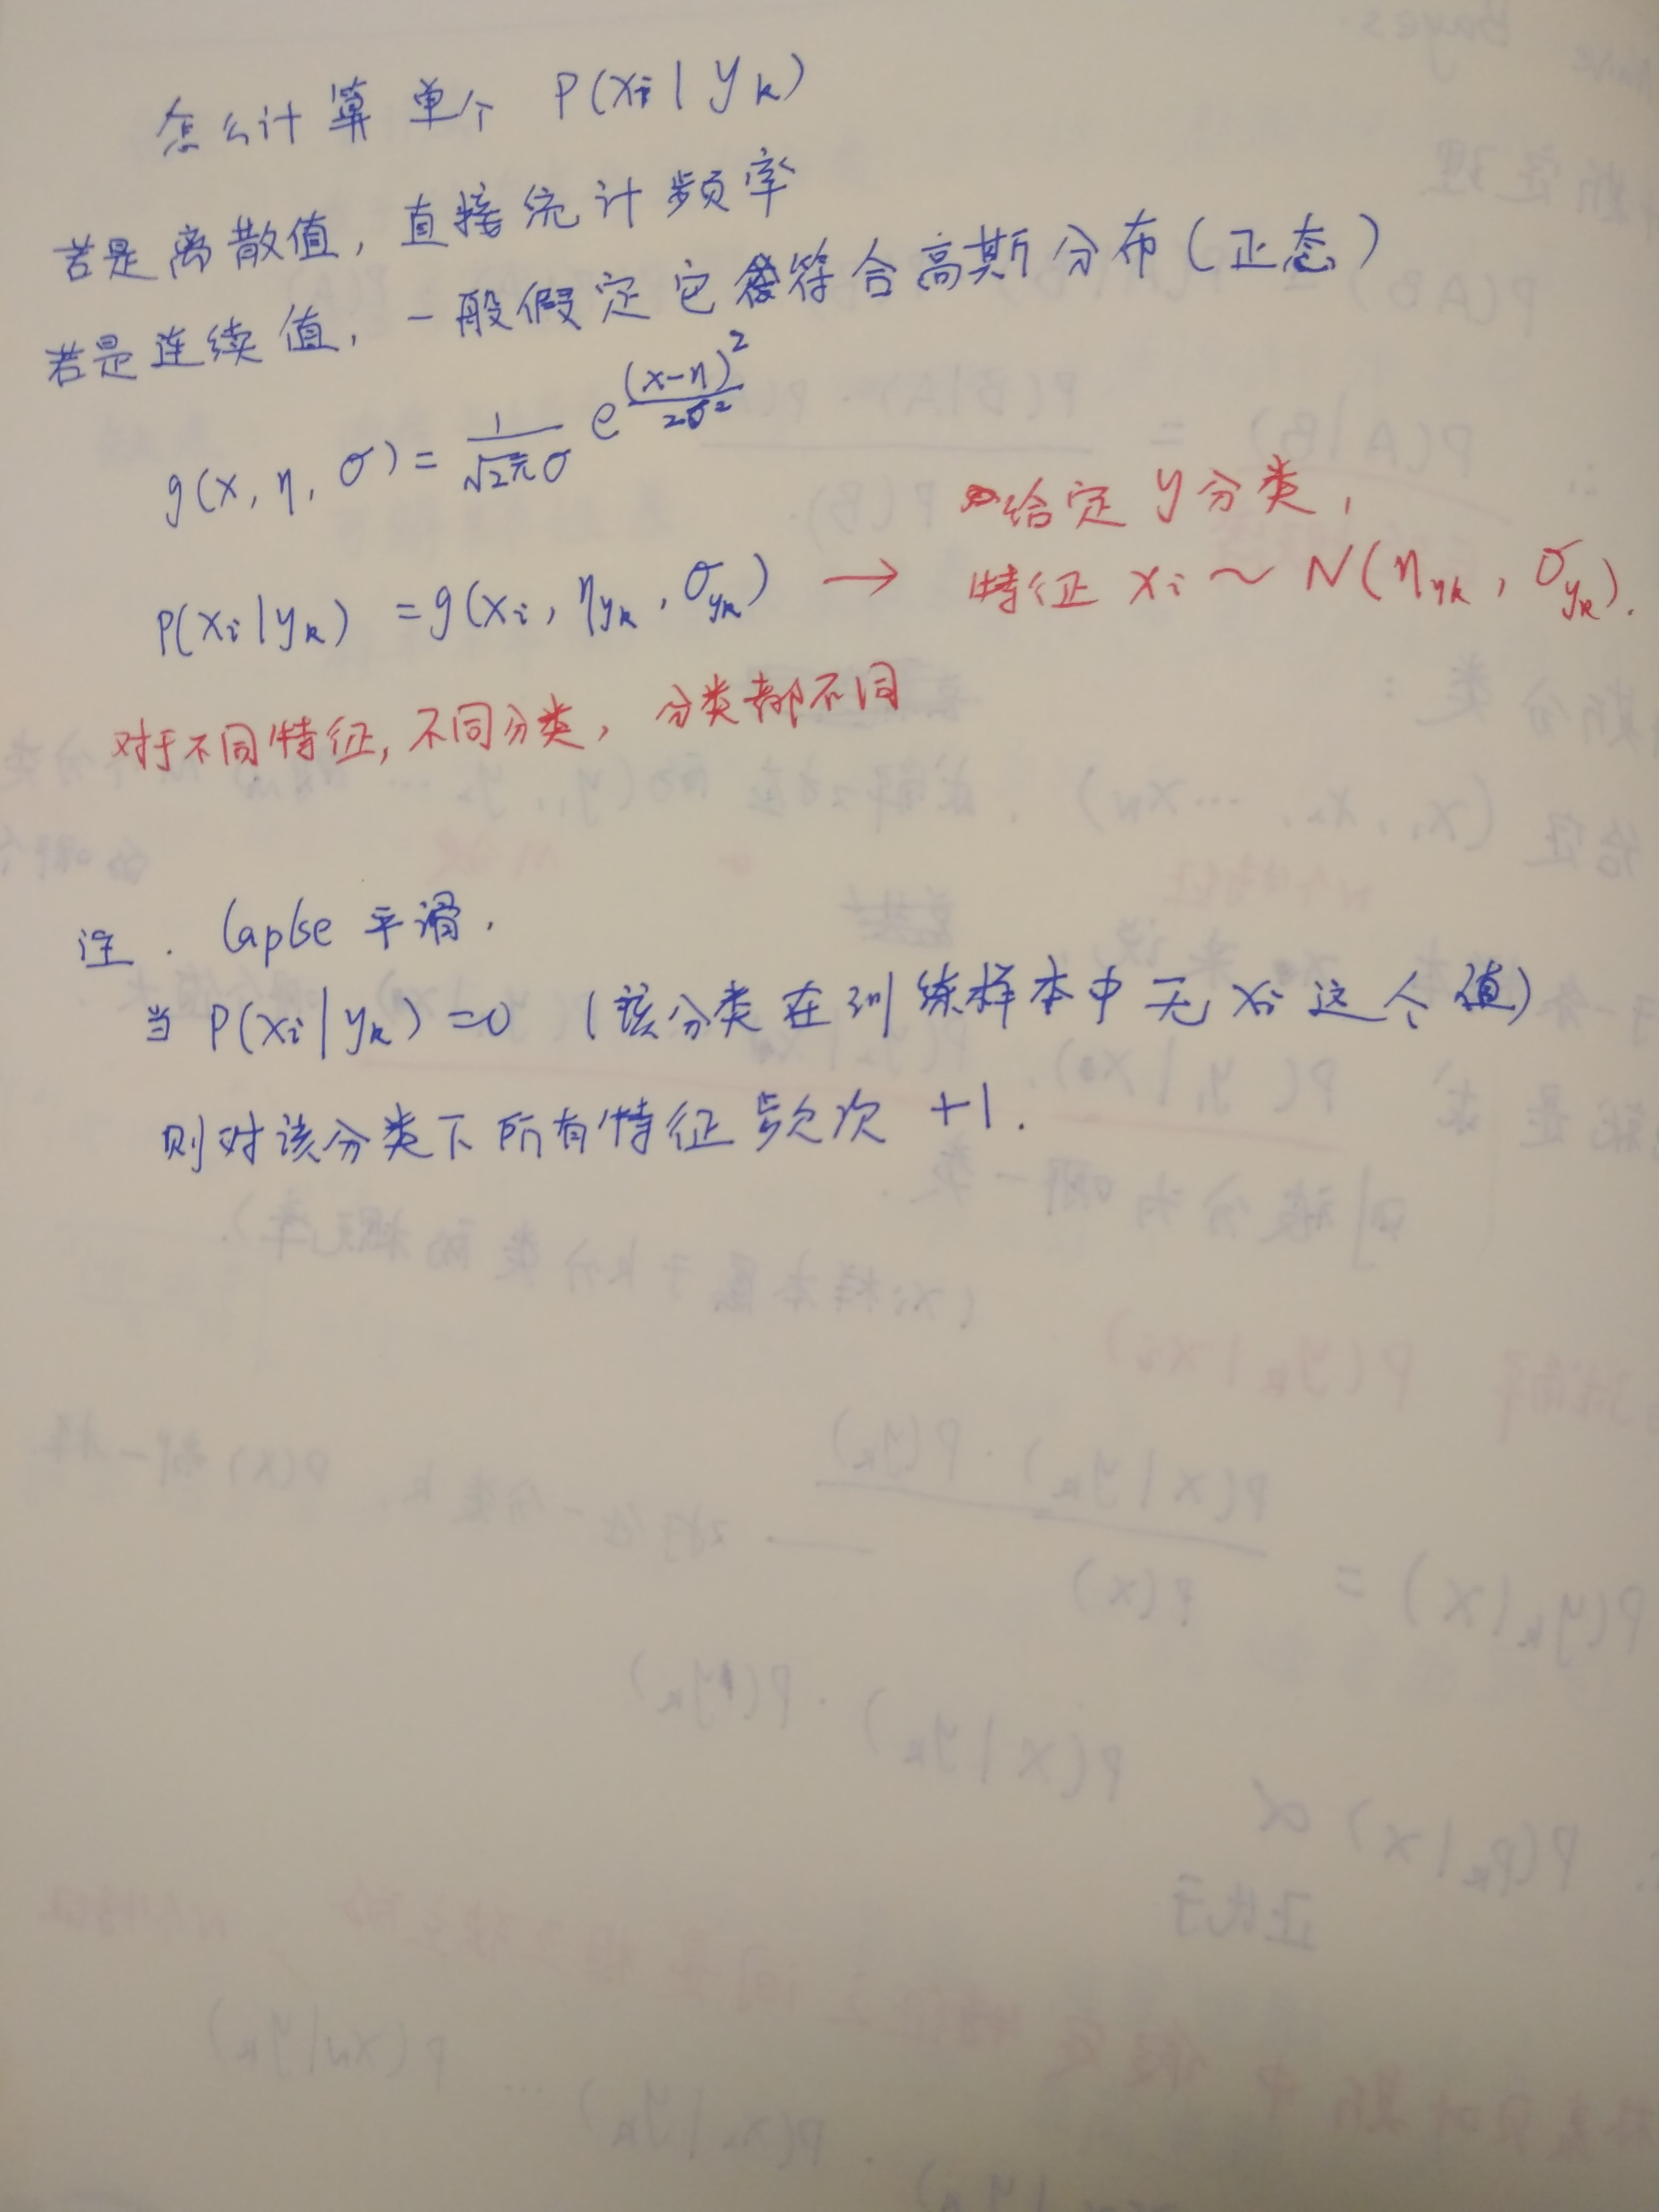 怎么计算单个 P(xi | yk)
若是离散值, 直接统计频率
若是连续值, 一般假定它符合高斯分布(正态)
g(x, η, σ) = 1/√2π σ e^(x-η)²/2σ²
给定 y 分类,
P(xi|yk) = g(xi, ηyk, σyk) → 特征 xi ~ N(ηyk, σyk).
对于不同特征, 不同分类, 分类都不同
注. 平滑.
当 P(xi|yk)=0 (该分类在训练样本中无 xi 这个值)
则对该分类下所有特征频次 +1.